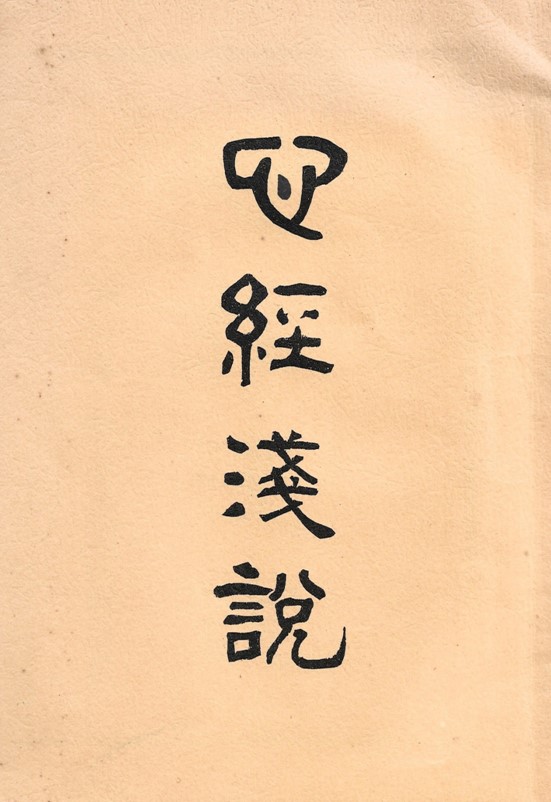 心經淺說